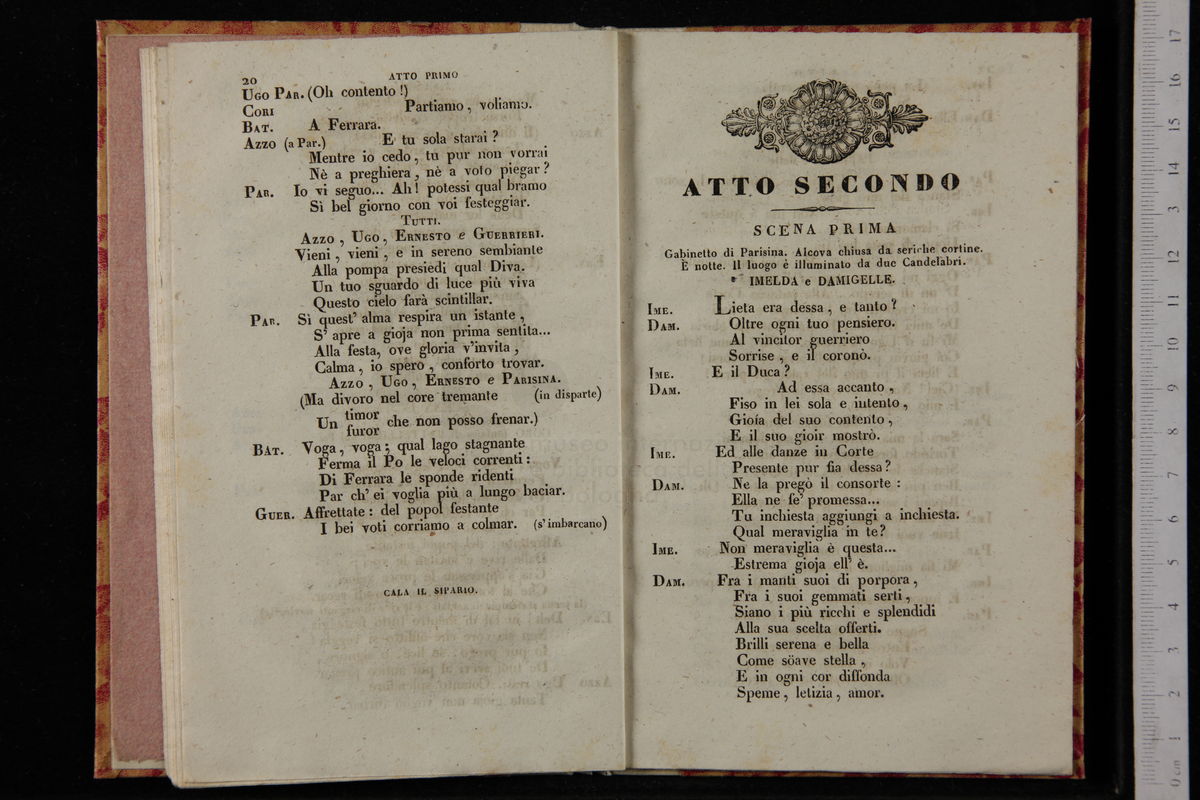 20 ATTO PRIMO
UGO PAR. (Oh contento!)
CORI Partiamo, voliamo.
BAT. A Ferrara.
AZZO (a Par.) E tu sola starai?
Mentre io cedo, tu pur non vorrai
Nè a preghiera, nè a voto piegar?
PAR. Io vi seguo... Ah! potessi qual bramo
Sì bel giorno con voi festeggiar.
TUTTI.
AZZO, UGO, ERNESTO e GUERRIERI.
Vieni, vieni, e in sereno sembiante
Alla pompa presiedi qual Diva.
Un tuo sguardo di luce più viva
Questo cielo farà scintillar.
PAR. Sì quest' alma respira un istante,
S' apre a gioja non prima sentita...
Alla festa, ove gloria v'invita,
Calma, io spero, conforto trovar.
AZZO, UGO, ERNESTO e PARISINA.
(Ma divoro nel core tremante (in disparte)
Un timor
furor che non posso frenar.)
BAT. Voga, voga; qual lago stagnante
Ferma il Po le veloci correnti:
Di Ferrara le sponde ridenti
Par ch' ei voglia più a lungo baciar.
GUER. Affrettate: del popol festante
I bei voti corriamo a colmar. (s' imbarcano)
CALA IL SIPARIO.
ATTO SECONDO
SCENA PRIMA
Gabinetto di Parisina. Alcova chiusa da seriche cortine.
È notte. Il luogo è illuminato da due Candelabri.
IMELDA e DAMIGELLE.
IME. Lieta era dessa, e tanto?
DAM. Oltre ogni tuo pensiero.
Al vincitor guerriero
Sorrise, e il coronò.
IME. E il Duca?
DAM. Ad essa accanto,
Fiso in lei sola e intento,
Gioía del suo contento,
E il suo gioir mostrò.
IME. Ed alle danze in Corte
Presente pur fia dessa?
DAM. Ne la pregò il consorte:
Ella ne fe' promessa...
Tu inchiesta aggiungi a inchiesta.
Qual meraviglia in te?
IME. Non meraviglia è questa...
Estrema gioja ell' è.
DAM. Fra i manti suoi di porpora,
Fra i suoi gemmati serti,
Siano i più ricchi e splendidi
Alla sua scelta offerti.
Brilli serena e bella
Come söave stella,
E in ogni cor diffonda
Speme, letizia, amor.